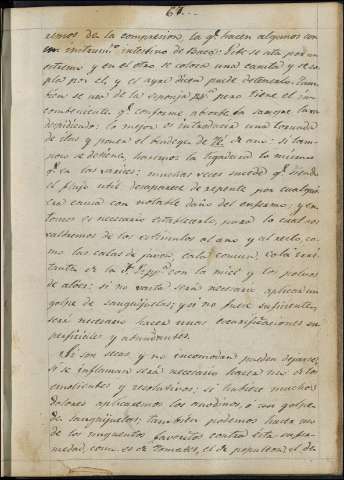 61...
remos de la compresion, la q.e hacen algunos con
un instrum.to intestino de Baca: Este se ata por un
estremo y en el otro se coloca una canula y se so-
pla por el, y es ayre dicen puede detenerla. Tam-
bien se usa de la esponja pp.da pero tiene el in-
combeniente q.e conforme absorbe la sangre la va
despidiendo: lo mejor es introducir una torunda
de ilas y poner el vendage de T de ano: si tam-
poco se detiene, haremos la ligadura lo mismo
q.e en las varices: muchas veces sucede q.e siendo
el flujo util desaparece de repente por cualqui-
era causa con notable daño del enfermo; y en-
tonces es necesario establecerlo, para lo cual nos
valdremos de los estimulos al ano y al recto, co-
mo las calas de javon, cala comun, cala irri-
tante de la con la miel y los polvos
de aloes: si no vasta será necesario aplicar un
golpe de sanguijuelas; y si no fuere suficiente,
será necesario hacer unas escarificaciones su-
perficiales y abundantes.
Si son secas y no incomodan pueden dejarse;
si se inflaman será necesario hacer uso de los
emolientes y resolutivos, si hubiere muchos
dolores aplicaremos los anodinos, ó un golpe
de sanguijuelas; tambien podemos hacer uso
de los unguentos favoritos contra esta enfer-
medad, como es de tomates, el de populeon, el de